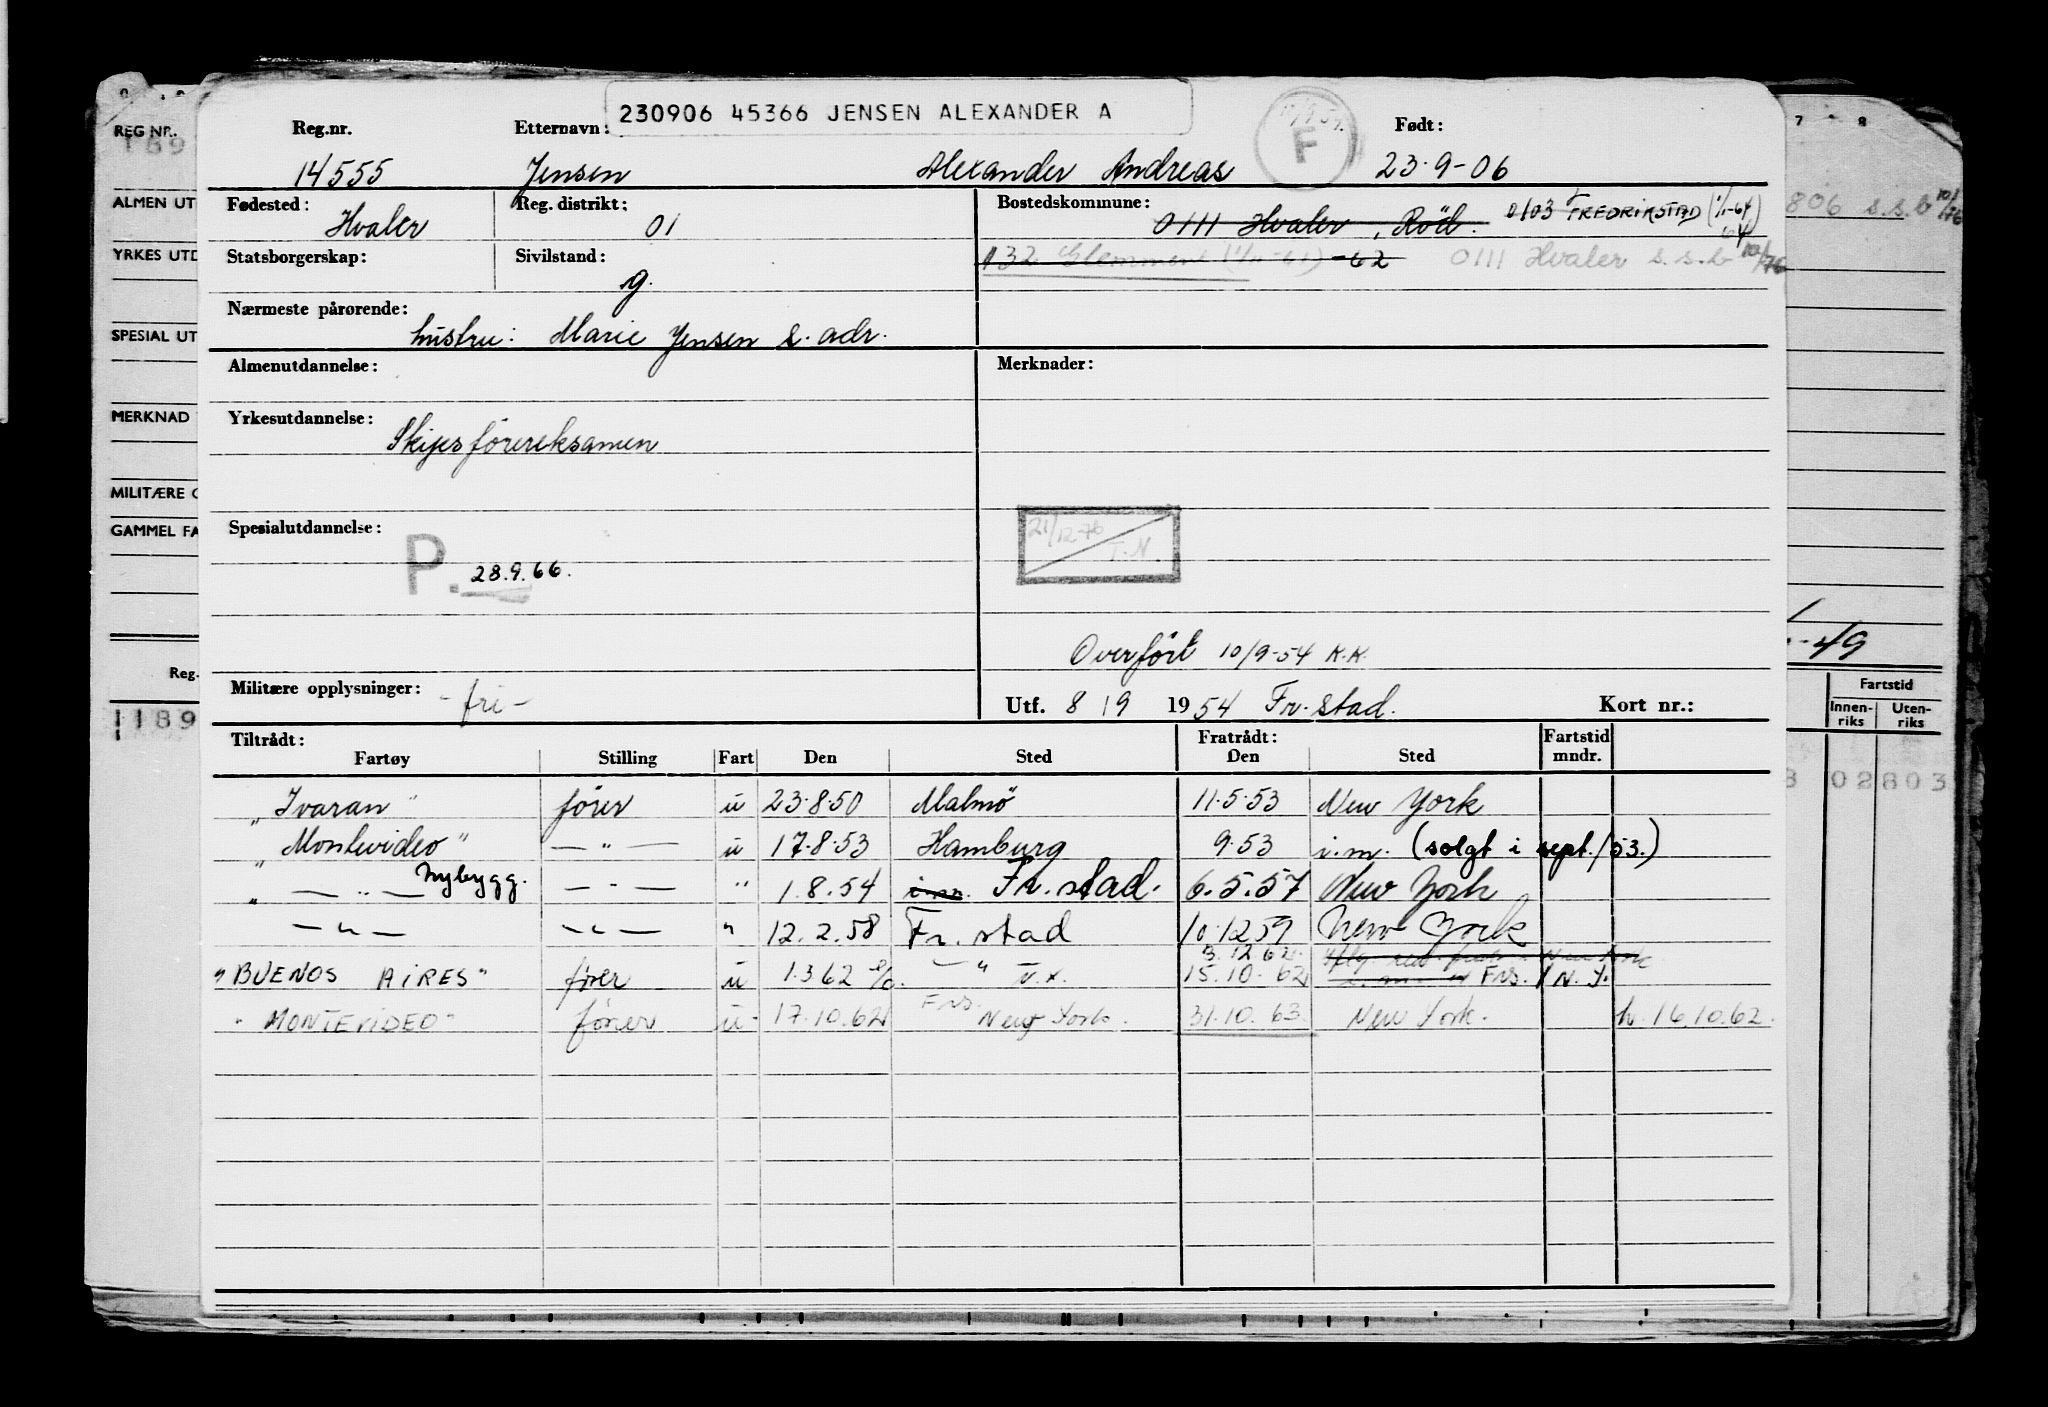 230906 45366 JENSEN ALEXANDER A
Reg.nr. Etternavn: F Født:
14555 Jensen Alexander Andreas 23.9-06
Fødested: Reg. distrikt: Bostedskommune:
Hvaler 01 0111 Hvaler, Röd. 0103 FREDRIKSTAD (1/1-64)
Statsborgerskap: Sivilstand: 132 Glemmen (1/11-61) -62 0111 Hvaler s.s.b 10/76
g.
Nærmeste pårørende:
hustru: Marie Jensen s. adr.
Almenutdannelse: Merknader:
Yrkesutdannelse:
Skipsförereksamen
Spesialutdannelse: 21/12-76
T.N.
P. 28.9.66.
Overfört 10/9-54 K.K.
Militære opplysninger: -fri- Utf. 8/9 1954 Fr.stad. Kort nr.:
Tiltrådt: Fratrådt: Fartstid
Fartøy Stilling Fart Den Sted Den Sted mndr.
"Ivaran" förer u 23.8.50 Malmö 11.5.53 New York
"Montevideo" — " — u 17.8.53 Hamburg 9.53 i.m. (solgt i sept./53.)
" — " — Nybygg. — " — " 1.8.54 i.m. Fr.stad. 6.5.57 New York
— " — — " — " 12.2.58 Fr.stad 10.12.59 New York
3.12.62
"BUENOS AIRES" förer u 1.3.62 — " — 15.10.62 Frs. / N.Y.
Frs.
"MONTEVIDEO" förer u 17.10.62 New York. 31.10.63. New York. h. 16.10.62.
REG NR.
189
ALMEN UT
YRKES UTD
SPESIAL UT
MERKNAD
MILITÆRE O
GAMMEL FA
Reg.
1189
7 8
806 s.s.b 10/76
-49
Fartstid
Innen-riks Uten-riks
3 02803